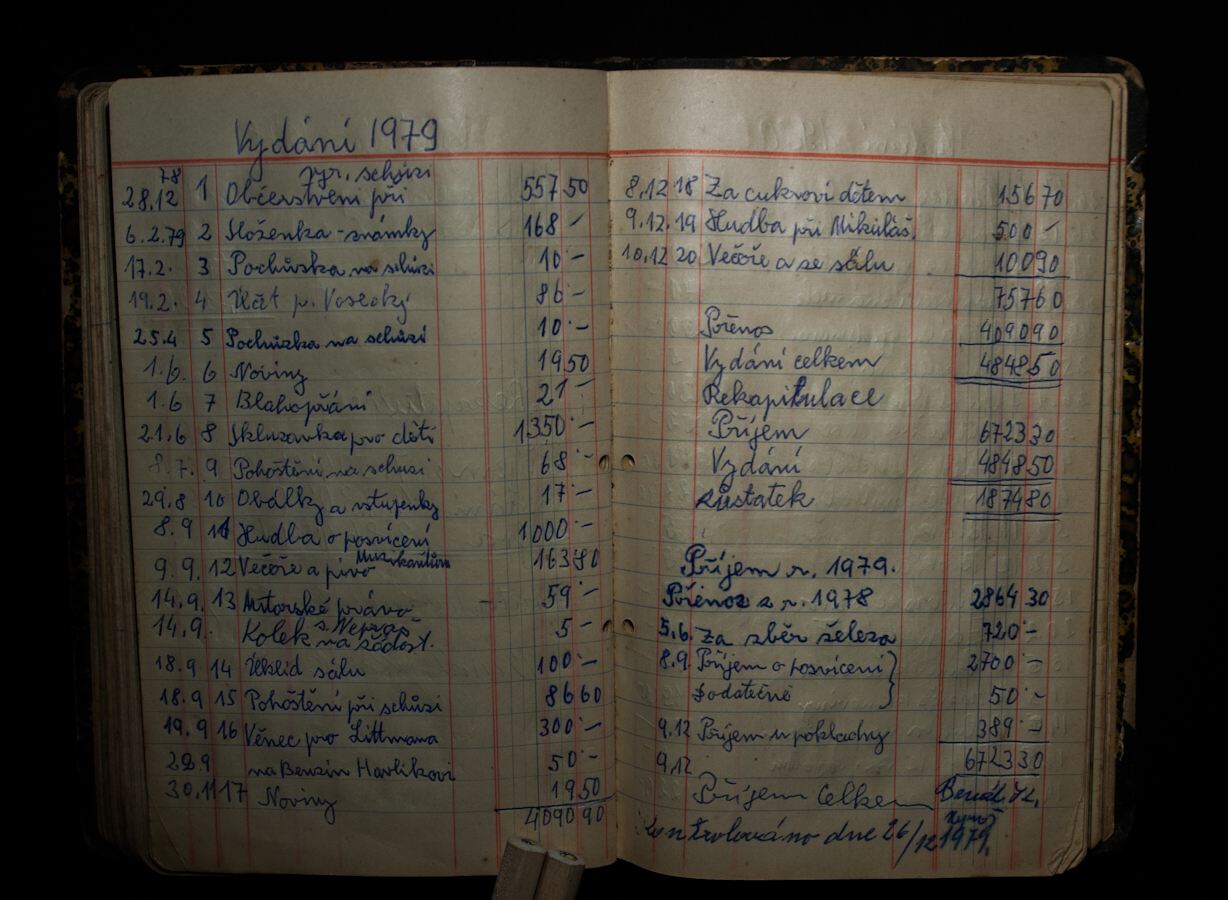 Vydání 1979
28.12 78 1 Občerstvení při výr. schůzi 557 50
6.2.79 2 Složenka - známky 168 -
17.2. 3 Pochůzka na schůzi 10 -
19.2. 4 Účet p. Vosecký 86 -
25.4 5 Pochůzka na schůzi 10 -
1.6. 6 Noviny 19 50
1.6 7 Blahopřání 21 -
21.6 8 Skluzavka pro děti 1350 -
8.7. 9 Pohoštění na schůzi 68 -
29.8 10 Obálky a vstupenky 17 -
8.9 11 Hudba o posvícení 1000 -
9.9. 12 Večeře a pivo Muzikantům 163 80
14.9. 13 Autorské právo 59 -
14.9. Kolek na žádost. 5 -
18.9 14 Úklid sálu 100 -
18.9 15 Pohoštění při schůzi 86 60
19.9 16 Věnec pro Littmana 300 -
29.9 na Benzin Havlikovi 50 -
30.11 17 Noviny 19 50
4090 90
8.12 18 Za cukroví dětem 156 70
9.12. 19 Hudba při Mikuláš. 500 -
10.12 20 Večeře a ze sálu 100 90
757 60
Přenos 4090 90
Vydání celkem 4848 50
Rekapitulace
Příjem 6723 30
Vydání 4848 50
Zůstatek 1874 80
Příjem r. 1979.
Přenos z r. 1978 2864 30
5.6. Za sběr železa 720 -
8.9. Příjem o posvícení 2700 -
dodatečně 50 -
9.12 Příjem u pokladny 389 -
9.12 6723 30
Příjem Celkem
Kontrolováno dne 26/12 1979.